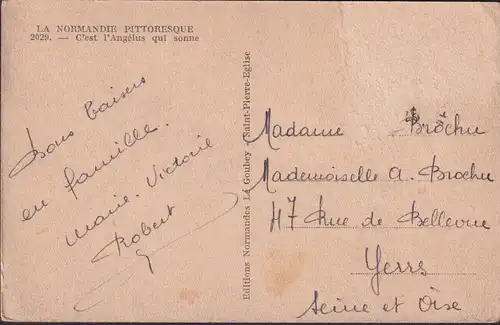 LA NORMANDIE PITTORESQUE
2029. — C'est l'Angélus qui sonne
Bons baisers
en famille.
Marie-Victorie
Robert
Editions Normandes Le Goubey - Saint-Pierre-Eglise
Madame Brochu
Mademoiselle A. Brochu
47 Rue de Bellevue
Yerres
Seine et Oise